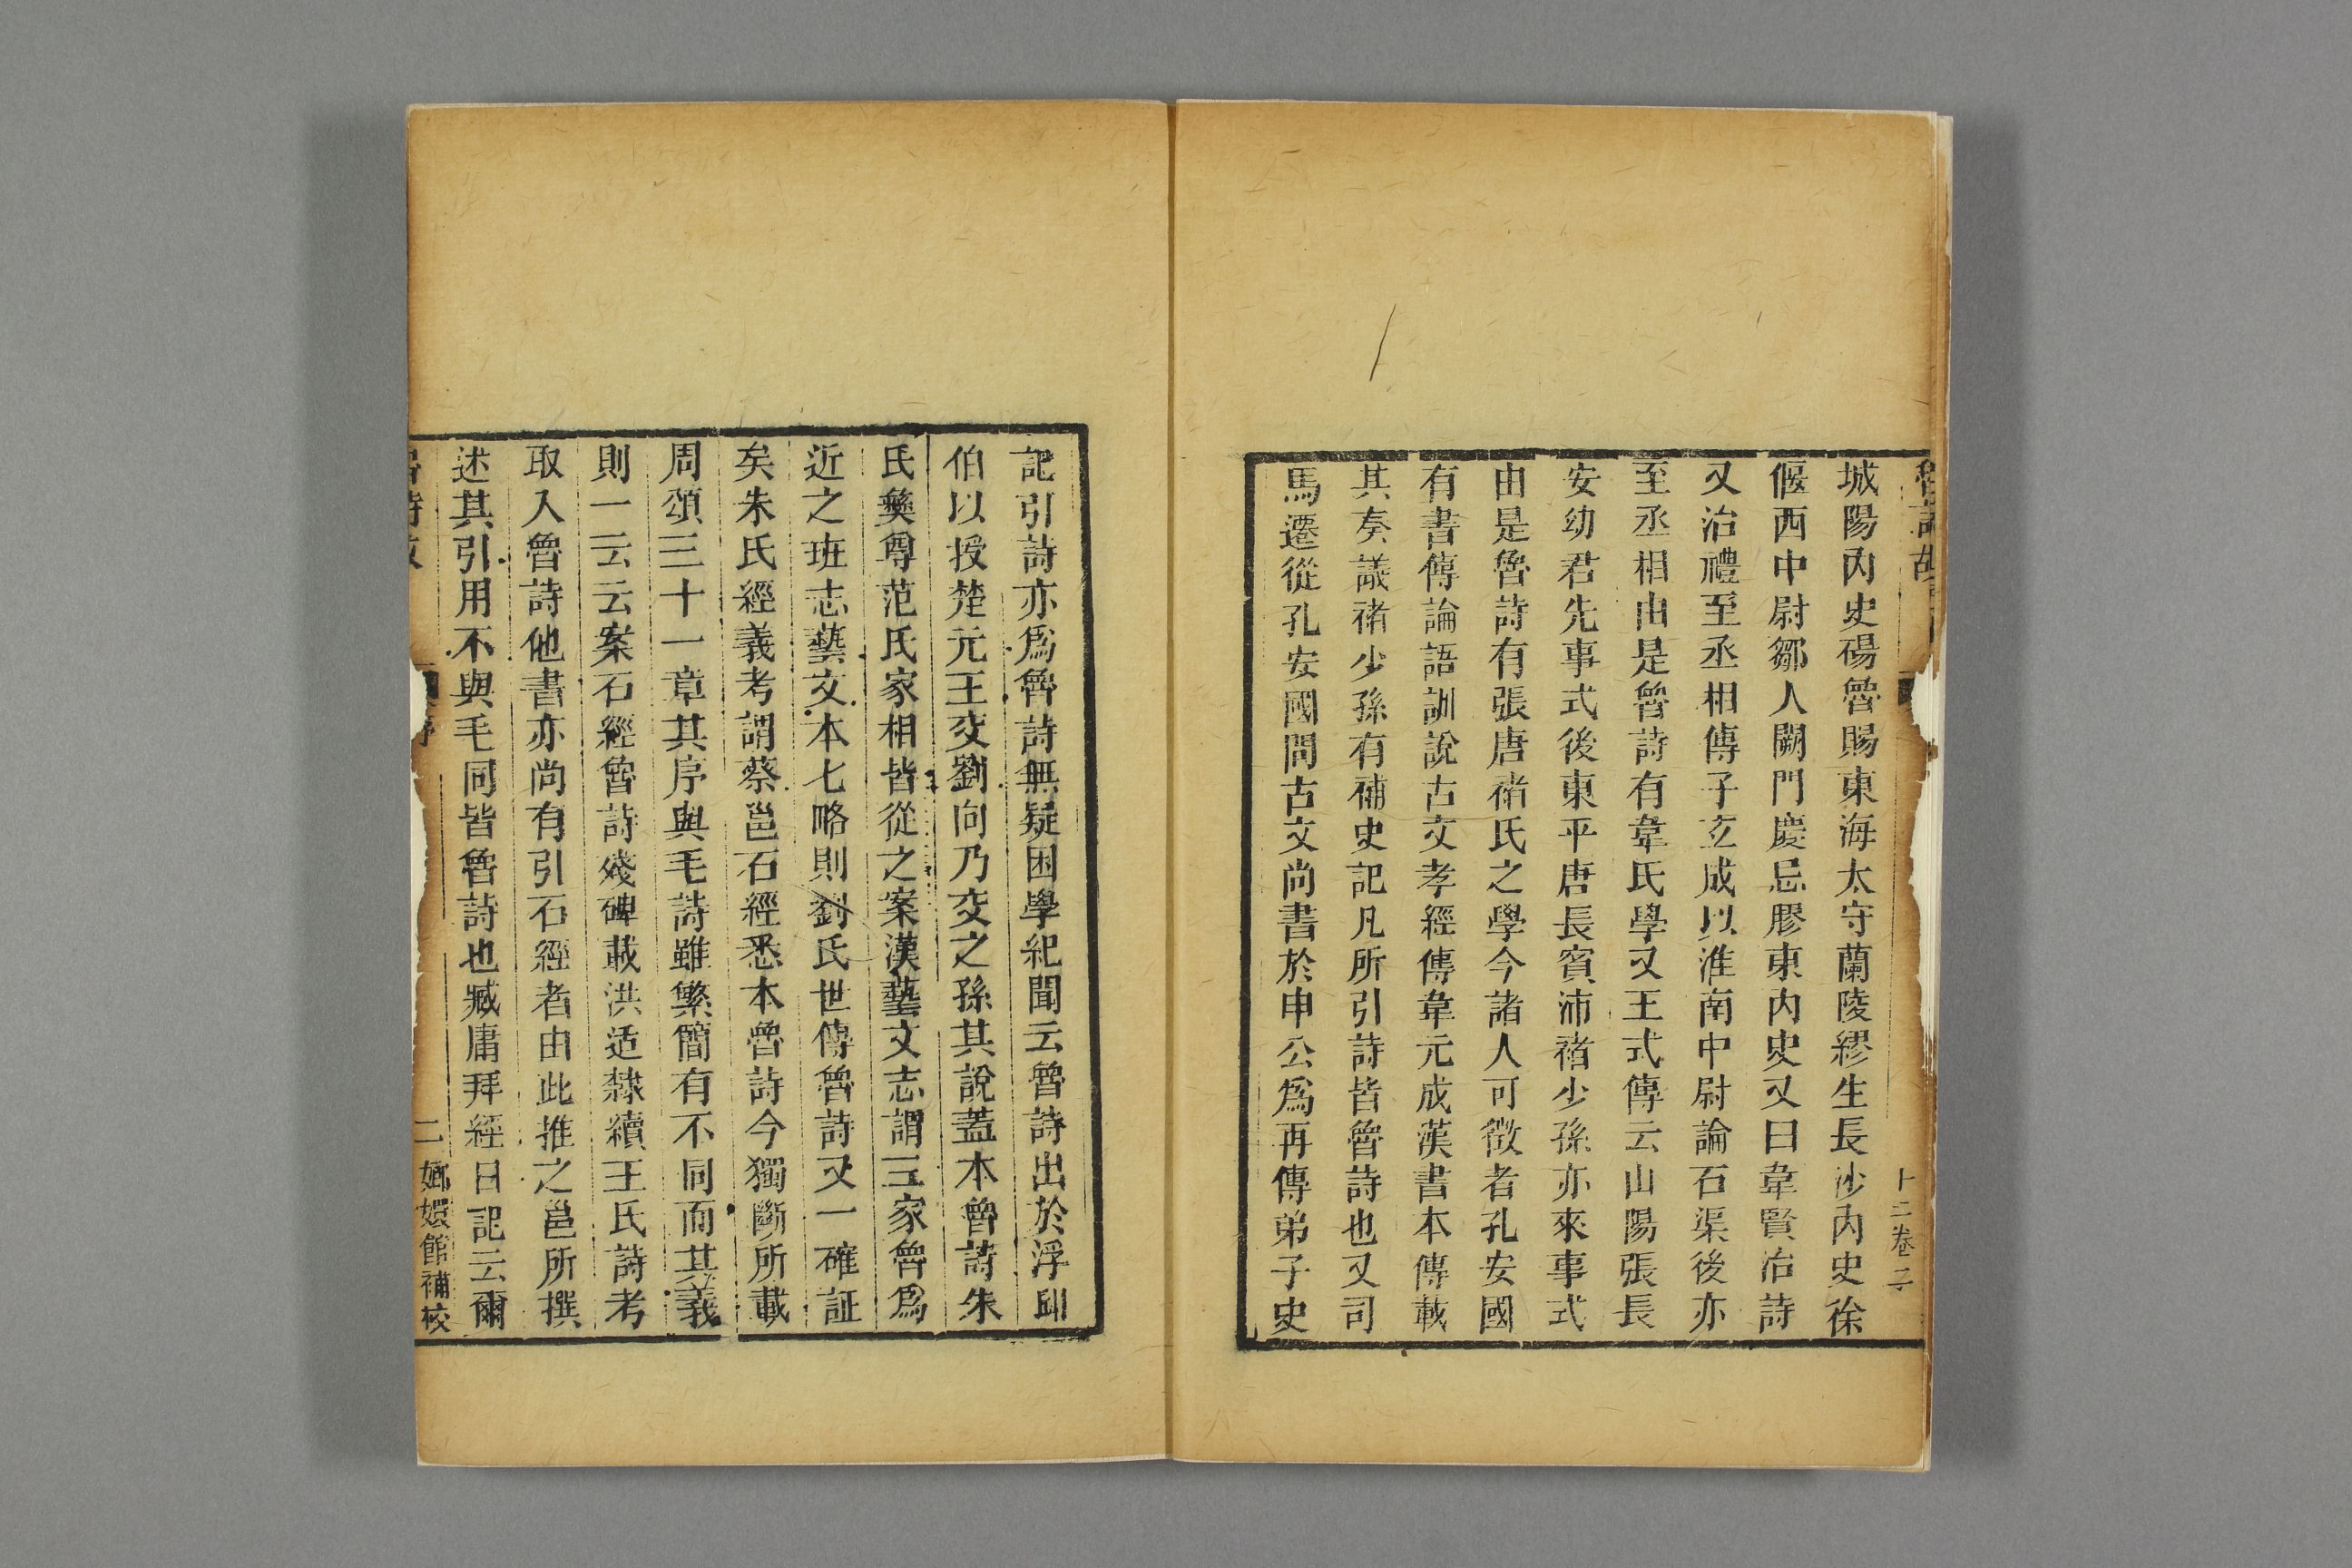 魯詩故
十三卷二
城陽内史碭魯賜東海太守蘭陵繆生長沙内史徐
偃西中尉鄒人闕門慶忌膠東内史又曰韋賢治詩
又治禮至丞相傳子玄成以淮南中尉論石渠後亦
至丞相由是魯詩有韋氏學又王式傳云山陽張長
安幼君先事式後東平唐長賓沛禇少孫亦來事式
由是魯詩有張唐禇氏之學今諸人可徵者孔安國
有書傳論語訓說古文孝經傳韋元成漢書本傳載
其奏議禇少孫有補史記凡所引詩皆魯詩也又司
馬遷從孔安國問古文尚書於申公爲再傳弟子史
記引詩亦爲魯詩無疑困學紀聞云魯詩出於浮邱
伯以授楚元王交劉向乃交之孫其說蓋本魯詩朱
氏彝尊范氏家相皆從之案漢藝文志謂三家魯爲
近之班志藝文本七略則劉氏世傳魯詩又一確証
矣朱氏經義考謂蔡邕石經悉本魯詩今獨斷所載
周頌三十一章其序與毛詩雖繁簡有不同而其義
則一云云案石經魯詩殘碑載洪适隸續王氏詩考
取入魯詩他書亦尚有引石經者由此推之邕所撰
述其引用不與毛同皆魯詩也臧庸拜經日記云爾
二 嫏嬛館補校